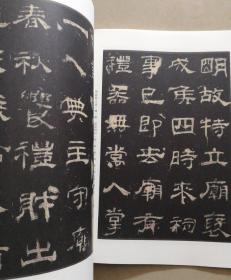 明故特立廟褒
成侯四時來祠
事已即去廟有
禮器無常人掌
一人典主守廟
春秋饗禮財出